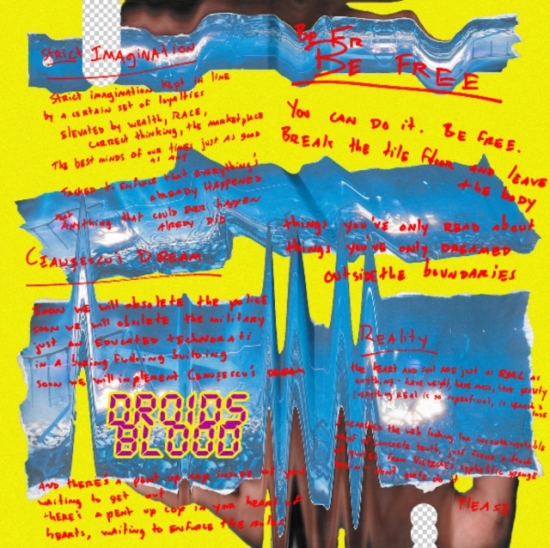 Strict Imagination
Strict imagination kept in line
by a certain set of loyalties
Elevated by wealth, RACE,
correct thinking, the marketplace
The best minds of our times just as good
as any
Tasked to enforce that everything's
already HAPPENED
Anything that could ever happen
Already DID
Ceauşescu's DREAM
Soon we will obsolete the police
soon we will obsolete the military
just an EDUCATED technorati
in a building
soon we will implement Ceauşescu's DREAM
DROIDS
BLOOD
AND there's a pent up cop inside of you
waiting to get out
there's a pent up cop in your heart of
hearts, waiting to ENFORCE the rules
BE FREE
You can do it. BE FREE.
BREAK the tile floor AND LEAVE
the body
things you've only READ about
things you've only DREAMED
outside the boundaries
Reality
the heart and soul are just as REAL as
anything - have weight, have mass, have gravity
everything REAL is so
the web looking for incontrovertible
concrete truth, just
don't quite do it
PLEASE